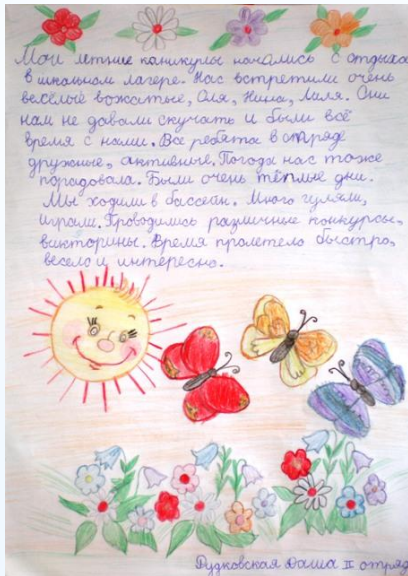 Мои летние каникулы начались с отдыха
в школьном лагере. Нас встретили очень
весёлые вожатые, Оля, Нина, Лиля. Они
нам не давали скучать и были всё
время с нами. Все ребята в отряде
дружные, активные. Погода нас тоже
порадовала. Были очень тёплые дни.
Мы ходили в бассейн. Много гуляли,
играли. Проводились различные конкурсы,
викторины. Время пролетело быстро,
весело и интересно.
Рудковская Даша II отряд